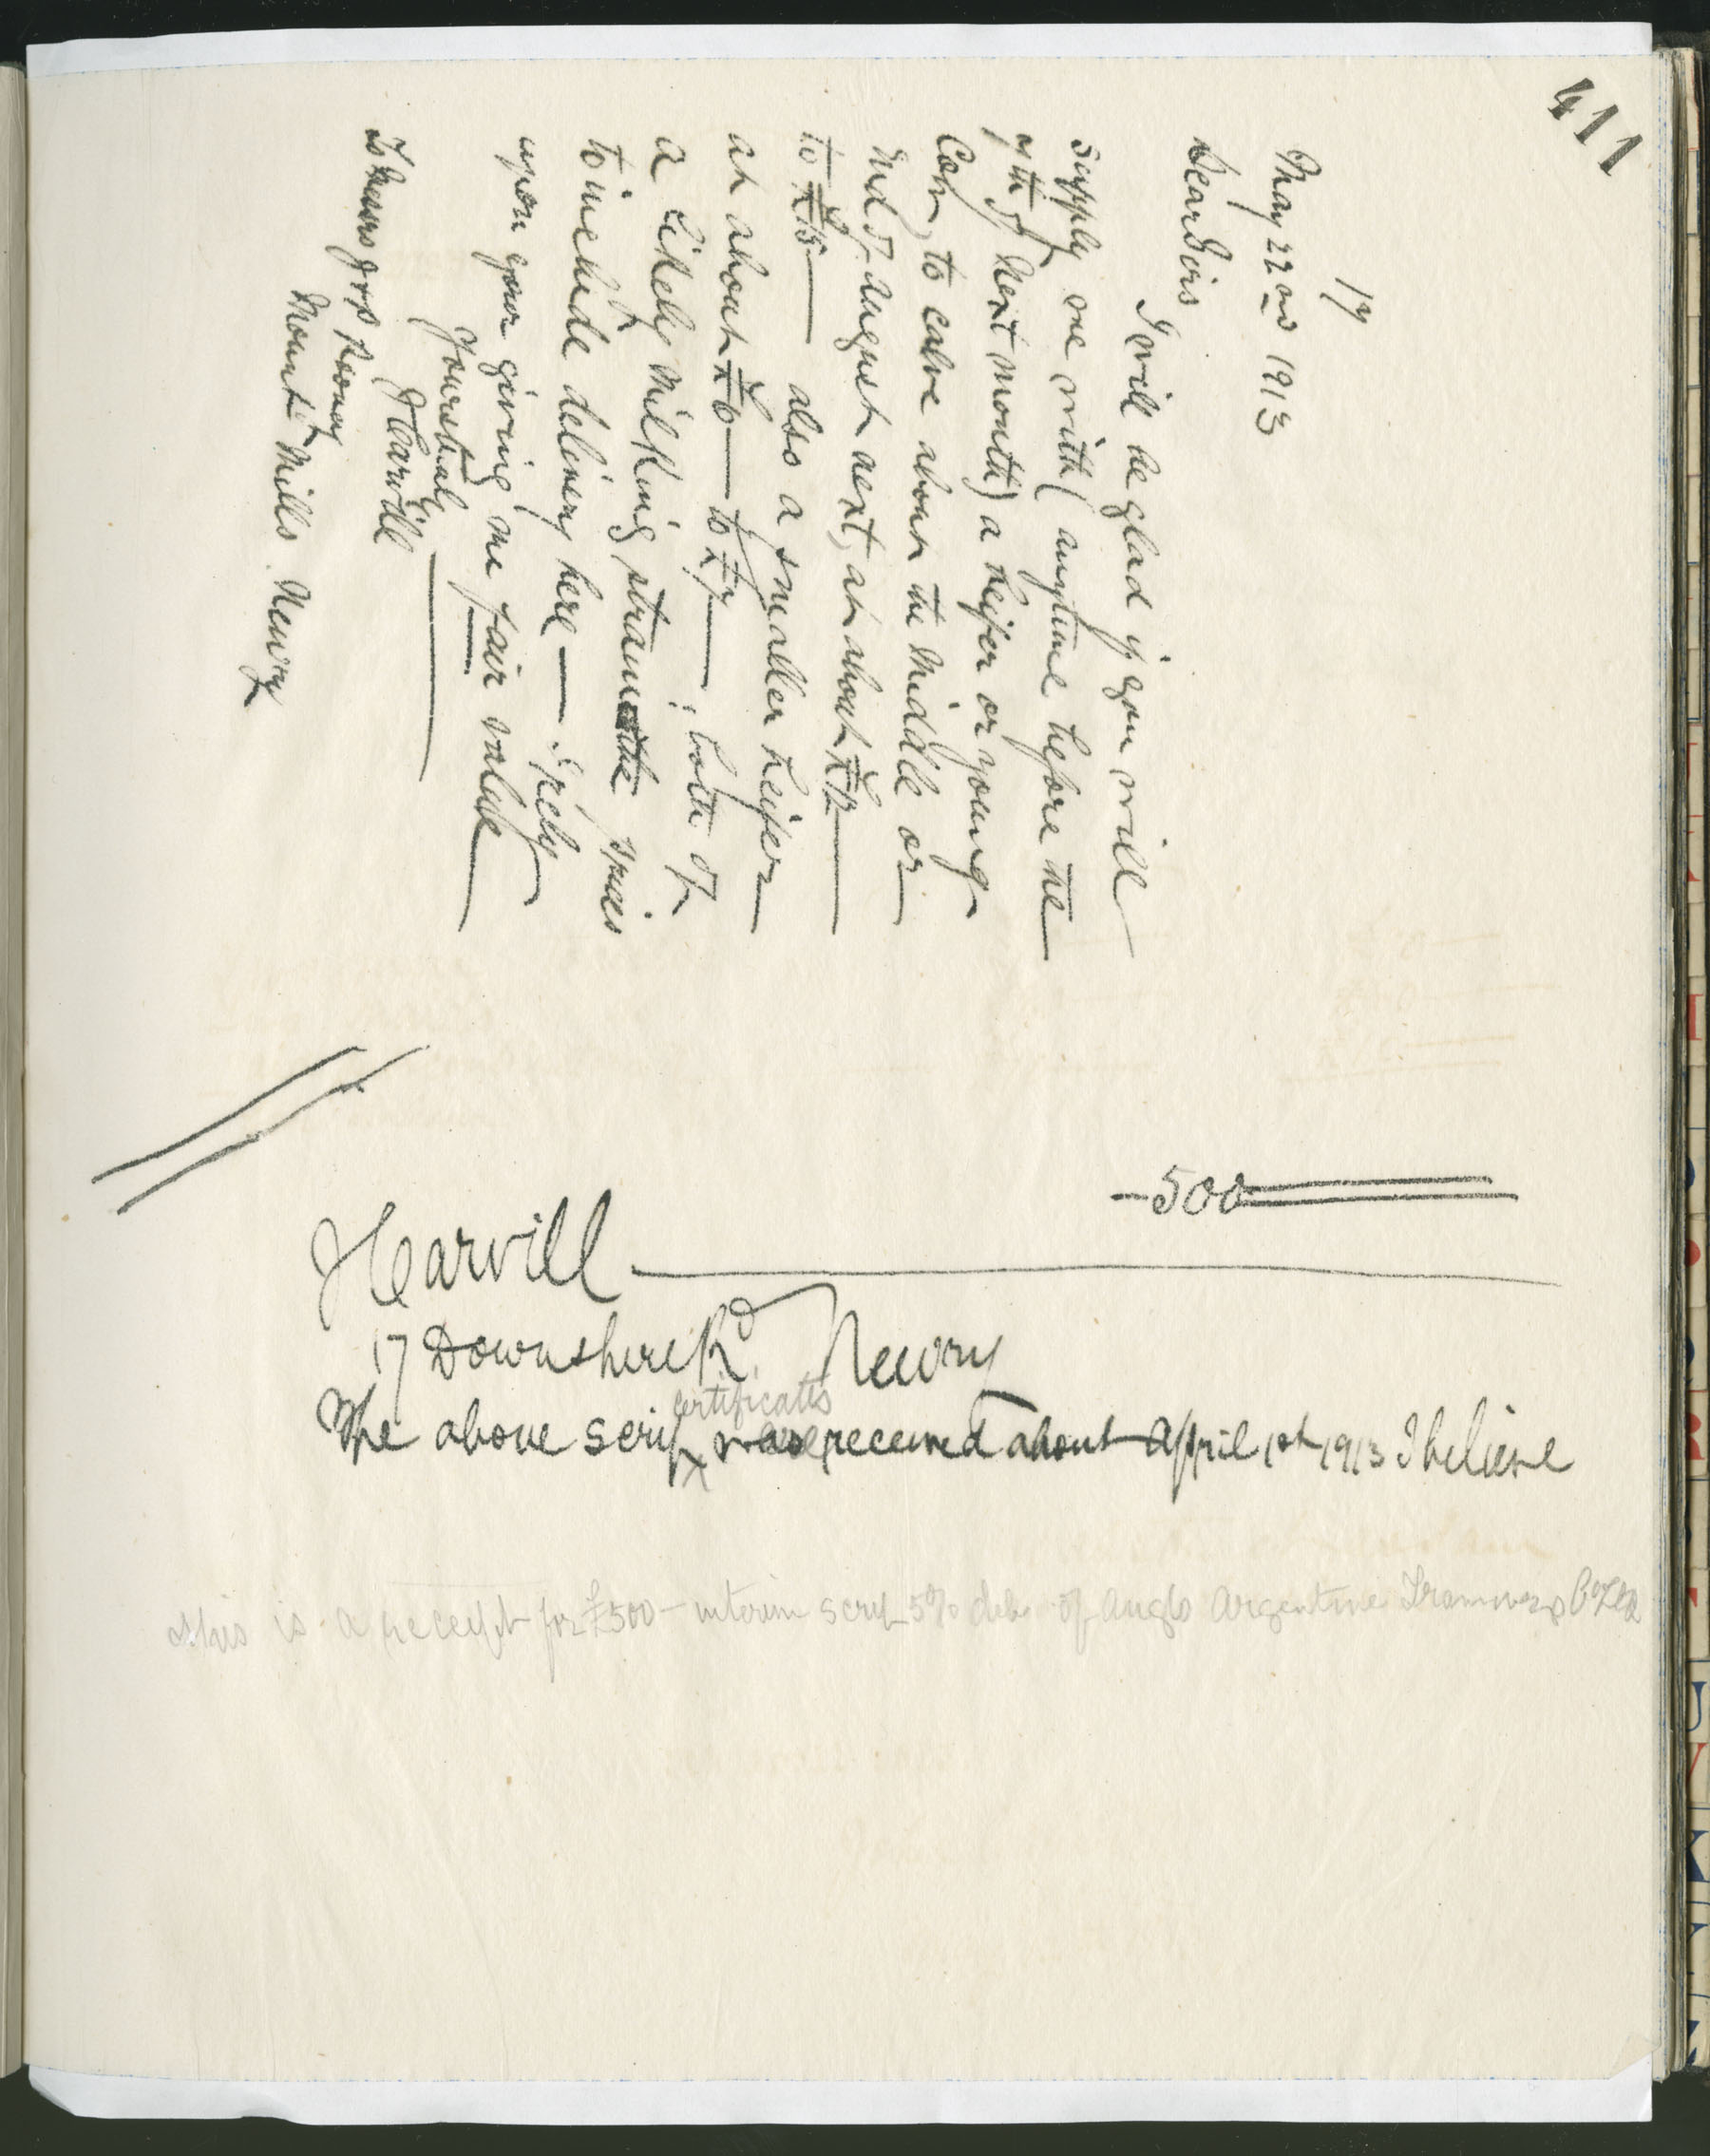 411
17
May 22nd 1913
Dear Sirs
I will be glad if you will
supply me with (anytime before the
7th of next month) a heifer or young
Cow, to calve about the middle or
end of August next, at about £12
to £15
also a smaller heifer
at about £6 — to £7 — ; both of
a likely milking strain the prices
to include delivery here — I rely
upon your giving me fair value
Yours truly
J Carvill
To Messrs J & P Rooney
Mount Mills Newry
— 500
J Carvill
17 Downshire Rd Newry
certificates
The above scrip was received about April 1st 1913 I believe
this is a receipt for £500 – interim scrip 5% deb of Anglo Argentine Tramways Co Ltd